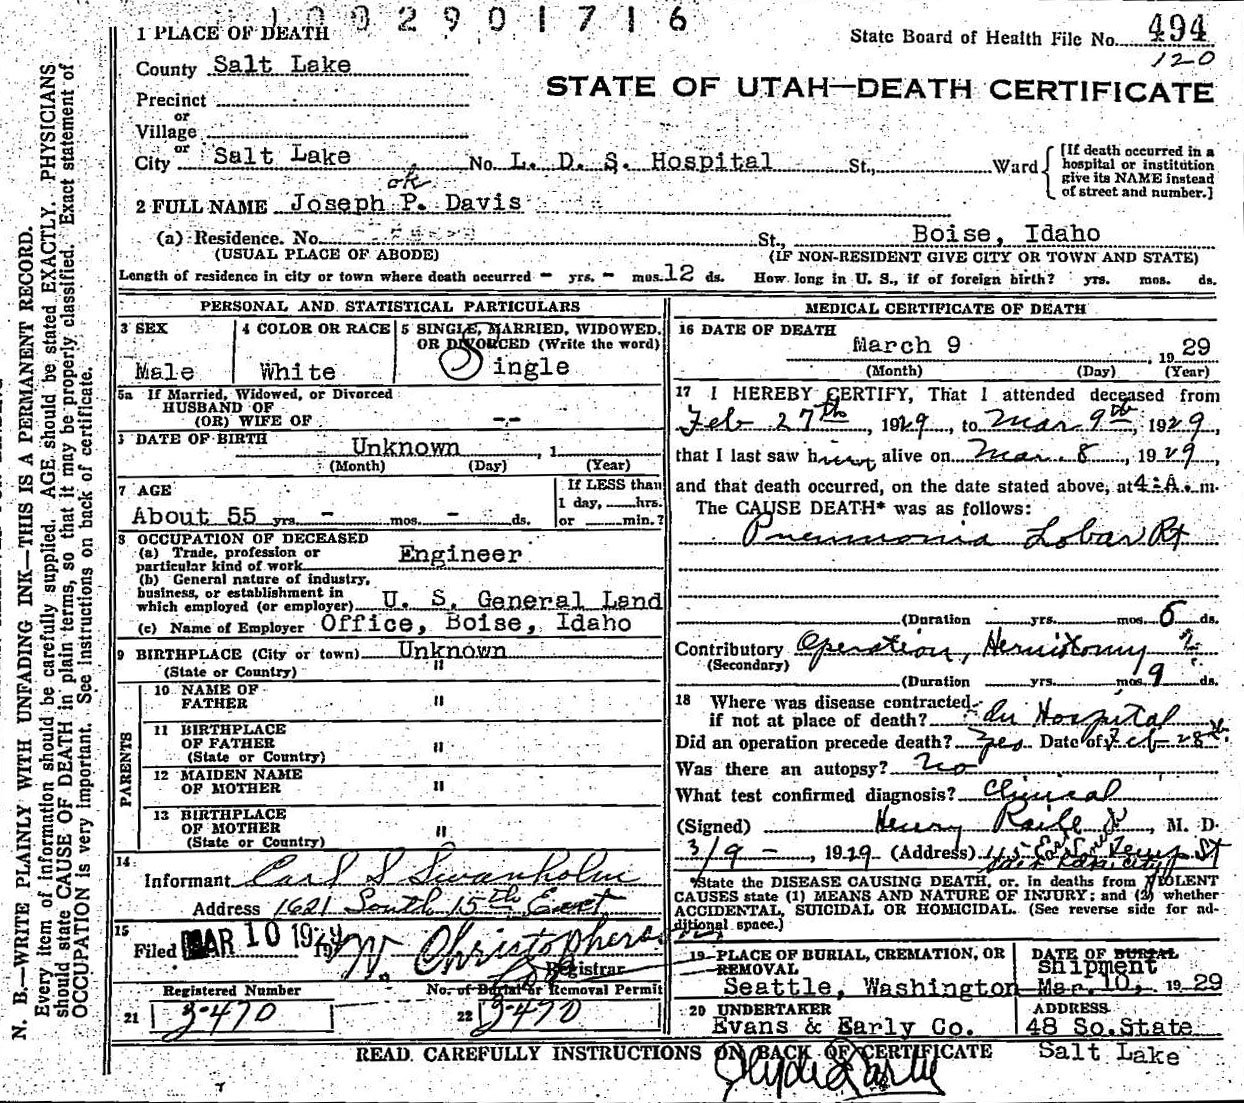 1002901716
State Board of Health File No. 494
120
1 PLACE OF DEATH
County Salt Lake
STATE OF UTAH—DEATH CERTIFICATE
Precinct
or
Village
or
City Salt Lake No. L. D. S. Hospital St., Ward
[If death occurred in a
hospital or institution
give its NAME instead
of street and number.]
ok
2 FULL NAME Joseph P. Davis
(a) Residence. No. St., Boise, Idaho
(USUAL PLACE OF ABODE) (IF NON-RESIDENT GIVE CITY OR TOWN AND STATE)
Length of residence in city or town where death occurred - yrs. - mos. 12 ds. How long in U. S., if of foreign birth? yrs. mos. ds.
PERSONAL AND STATISTICAL PARTICULARS
3 SEX
Male
4 COLOR OR RACE
White
5 SINGLE, MARRIED, WIDOWED,
OR DIVORCED (Write the word)
Single
5a If Married, Widowed, or Divorced
HUSBAND OF
(OR) WIFE OF -.-
DATE OF BIRTH Unknown , 1
(Month) (Day) (Year)
7 AGE
About 55 yrs. - mos. - ds.
If LESS than
1 day, hrs.
or min.?
8 OCCUPATION OF DECEASED
(a) Trade, profession or
particular kind of work Engineer
(b) General nature of industry,
business, or establishment in
which employed (or employer) U. S. General Land
(c) Name of Employer Office, Boise, Idaho
9 BIRTHPLACE (City or town) Unknown
(State or Country) "
PARENTS
10 NAME OF
FATHER "
11 BIRTHPLACE
OF FATHER "
(State or Country)
12 MAIDEN NAME
OF MOTHER "
13 BIRTHPLACE
OF MOTHER "
(State or Country)
14
Informant Carl S Swanholm
Address 1621 South 15th East
15
Filed MAR 10 1929 W. Christophers
Registrar
Registered Number
21 3-470
No. of Burial or Removal Permit
22 3-470
MEDICAL CERTIFICATE OF DEATH
16 DATE OF DEATH
March 9 , 19 29
(Month) (Day) (Year)
17 I HEREBY CERTIFY, That I attended deceased from
Feb 27th, 1929, to Mar 9th, 1929,
that I last saw him alive on Mar. 8, 1929,
and that death occurred, on the date stated above, at 4:A. m.
The CAUSE DEATH* was as follows:
Pneumonia Lobar Rt
(Duration yrs. mos. 5 ds.
Contributory Operation, Herniotomy
(Secondary)
(Duration yrs. mos. 9 ds.
18 Where was disease contracted
if not at place of death? In Hospital
Did an operation precede death? Yes Date of Feb-28th
Was there an autopsy? No
What test confirmed diagnosis? Clinical
(Signed) Henry Raile Jr, M. D.
3/9 -, 1929 (Address)
*State the DISEASE CAUSING DEATH, or, in deaths from VIOLENT
CAUSES state (1) MEANS AND NATURE OF INJURY; and (2) whether
ACCIDENTAL, SUICIDAL OR HOMICIDAL. (See reverse side for ad-
ditional space.)
19 PLACE OF BURIAL, CREMATION, OR
REMOVAL
Seattle, Washington
DATE OF BURIAL
shipment
Mar. 10, 19 29
20 UNDERTAKER
Evans & Early Co.
ADDRESS
48 So. State
Salt Lake
READ CAREFULLY INSTRUCTIONS ON BACK OF CERTIFICATE
N. B.—WRITE PLAINLY WITH UNFADING INK—THIS IS A PERMANENT RECORD.
Every item of information should be carefully supplied. AGE should be stated EXACTLY. PHYSICIANS
should state CAUSE OF DEATH in plain terms, so that it may be properly classified. Exact statement of
OCCUPATION is very important. See instructions on back of certificate.